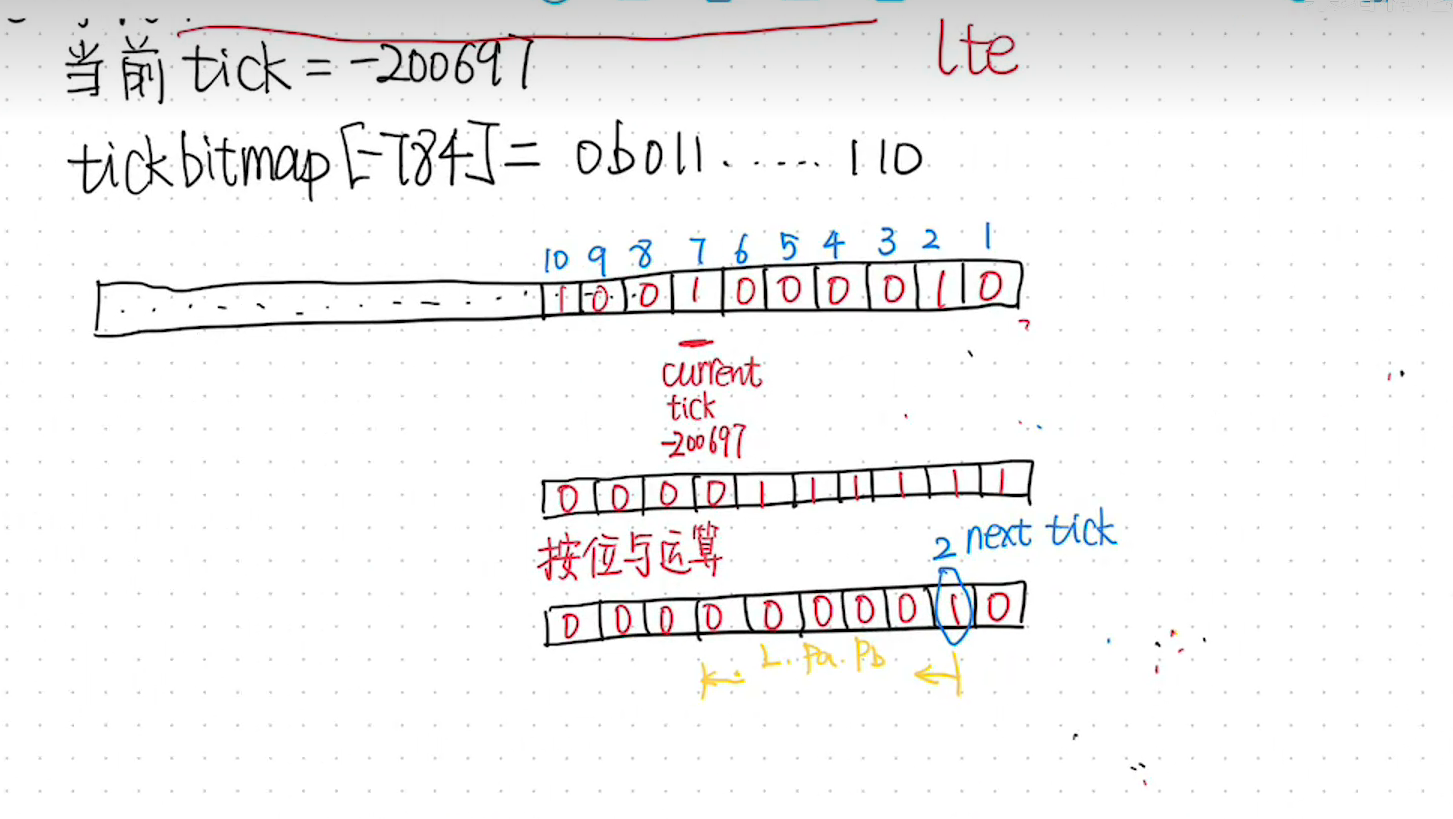 当前 tick = -200697
lte
tickbitmap [-784] = 0b011......110
10 9 8 7 6 5 4 3 2 1
1 0 0 1 0 0 0 0 1 0
current
tick
-200697
0 0 0 0 1 1 1 1 1 1
按位与运算
2 next tick
0 0 0 0 0 0 0 0 1 0
L. Pa. Pb